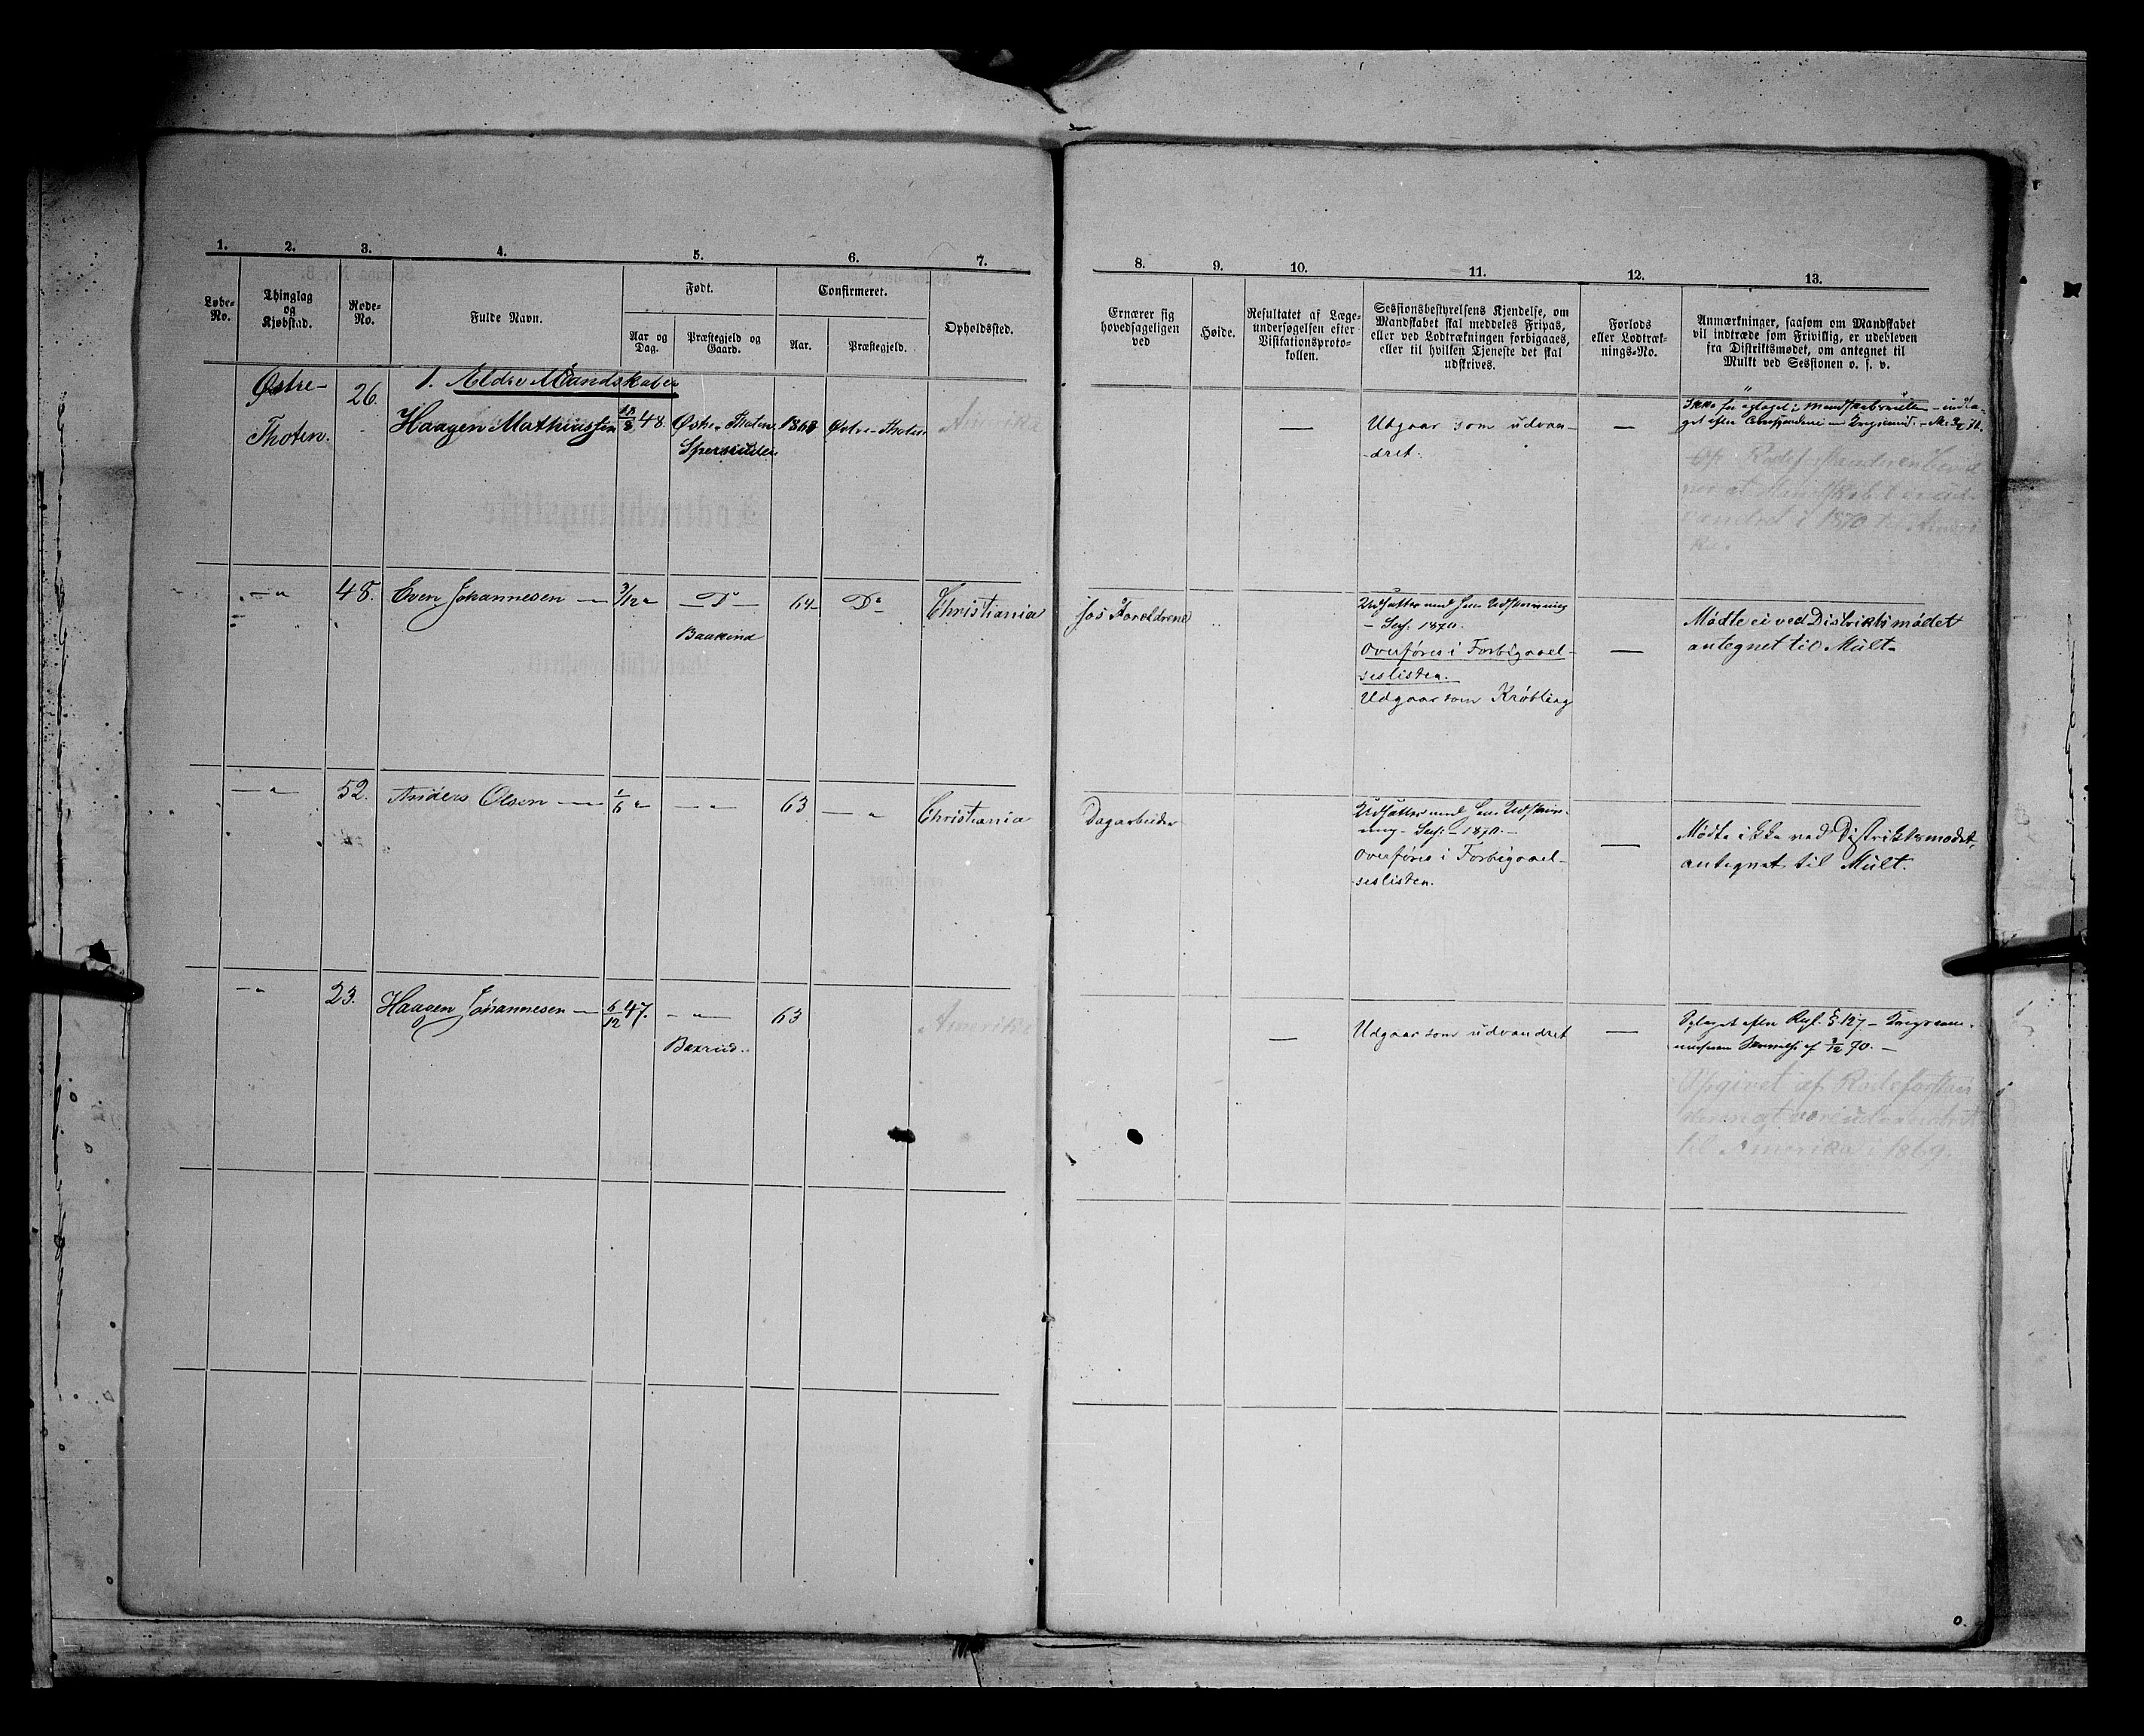 1. 2. 3. 4. 5. 6. 7.
Løbe-
No.
Thinglag
og
Kjøbstad.
Rode-
No.
Fulde Navn.
Født.
Aar og
Dag.
Præstegjeld og
Gaard.
Confirmeret.
Aar.
Præstegjeld.
Opholdssted.
8. 9. 10. 11. 12. 13.
Ernærer sig
hovedsageligen
ved
Høide.
Resultatet af Læge-
undersøgelsen efter
Visitationsproto-
kollen.
Sessionsbestyrelsens Kjendelse, om
Mandskabet skal meddeles Fripas,
eller ved Lodtrækningen forbigaaes,
eller til hvilken Tjeneste det skal
udskrives.
Forlods
eller Lodtræk-
nings-No.
Anmærkninger, saasom om Mandskabet
vil indtræde som Frivillig, er udebleven
fra Distriktsmødet, om antegnet til
Mulkt ved Sessionen o. s. v.
1. Ældre Mandskaber
Østre-
Thoten.
26.
Haagen Mathiassen
48.
Østre-Thoten
Østre-Thoten
Amerika
—
Udgaar som udvan-
dret.
—
Rodeforstanderen
at Mandskabet er ud-
vandret i 1870 til Ameri
ka.
—"
48.
Even Johannesen —
3/12 "
— D° —
Baakind
64
D°
Christiania
hos Forældrene
Udsættes med
Sess. 1870.
Overføres i Forbigaael-
seslisten.
Udgaar som Krøbling
—
Mødte ei ved Distriktsmødet
antegnet til Mult.
— "
52.
Anders Olsen —
1/6 "
— "
63
— "
Christiania
Dagarbeider
Udsættes med
Sess. 1870. —
Overføres i Forbigaael-
seslisten.
—
Mødte ikke ved Distriktsmødet,
antegnet til Mült.
— "
23.
Haagen Johannesen —
6/12 47.
— " —
Bøxrud.
63
Amerika
—
Udgaar som udvandret
—
Optaget efter Regl. § 127 —
af 3/12 70. —
Opgivet af Rodeforstan
deren at være udvandret
til Amerika i 1869.